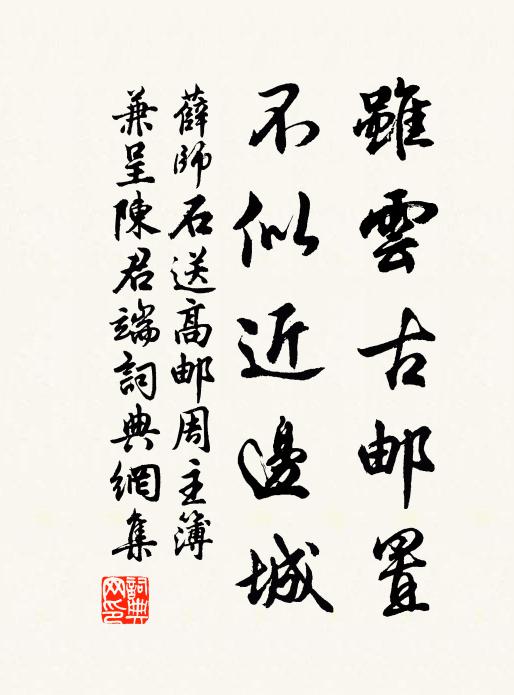 雖雲古邮置
不似近邊城
薛師石送高邮周主簿
兼呈陳君端詞典網集
詞典网印